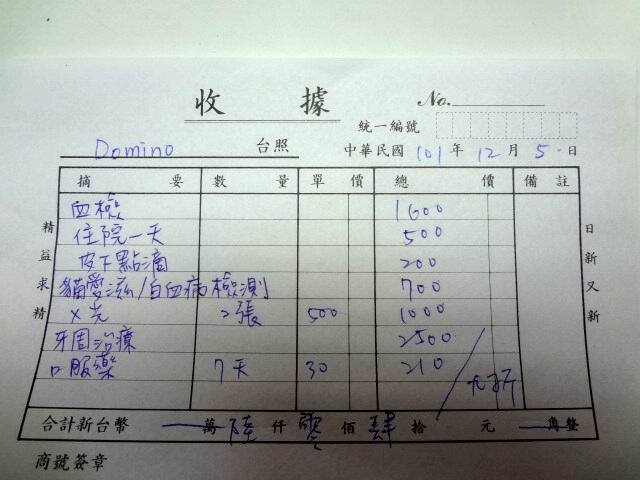 收據
No.
統一編號
Domino 台照 中華民國 101 年 12 月 5 日
摘要 數量 單價 總價 備註
血檢 1600
住院一天 500
皮下點滴 200
貓愛滋/白血病檢測 700
X光 2張 500 1000
牙周治療 2500
口服藥 7天 30 210
九折
合計新台幣 萬 陸 仟 零 佰 肆 拾 元 角整
商號簽章
精益求精
日新又新